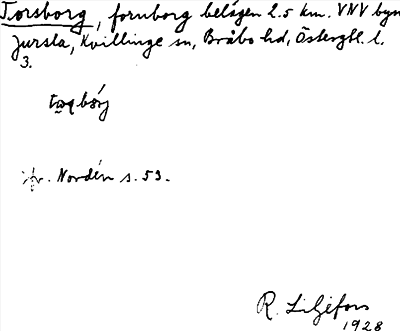 Torsborg, fornborg belägen 2.5 km. VNV byn
Jursla, Kvillinge sn, Bråbo hd, Östergtl. l.
3.
Nordén s. 53.
R. Liljefors
1928